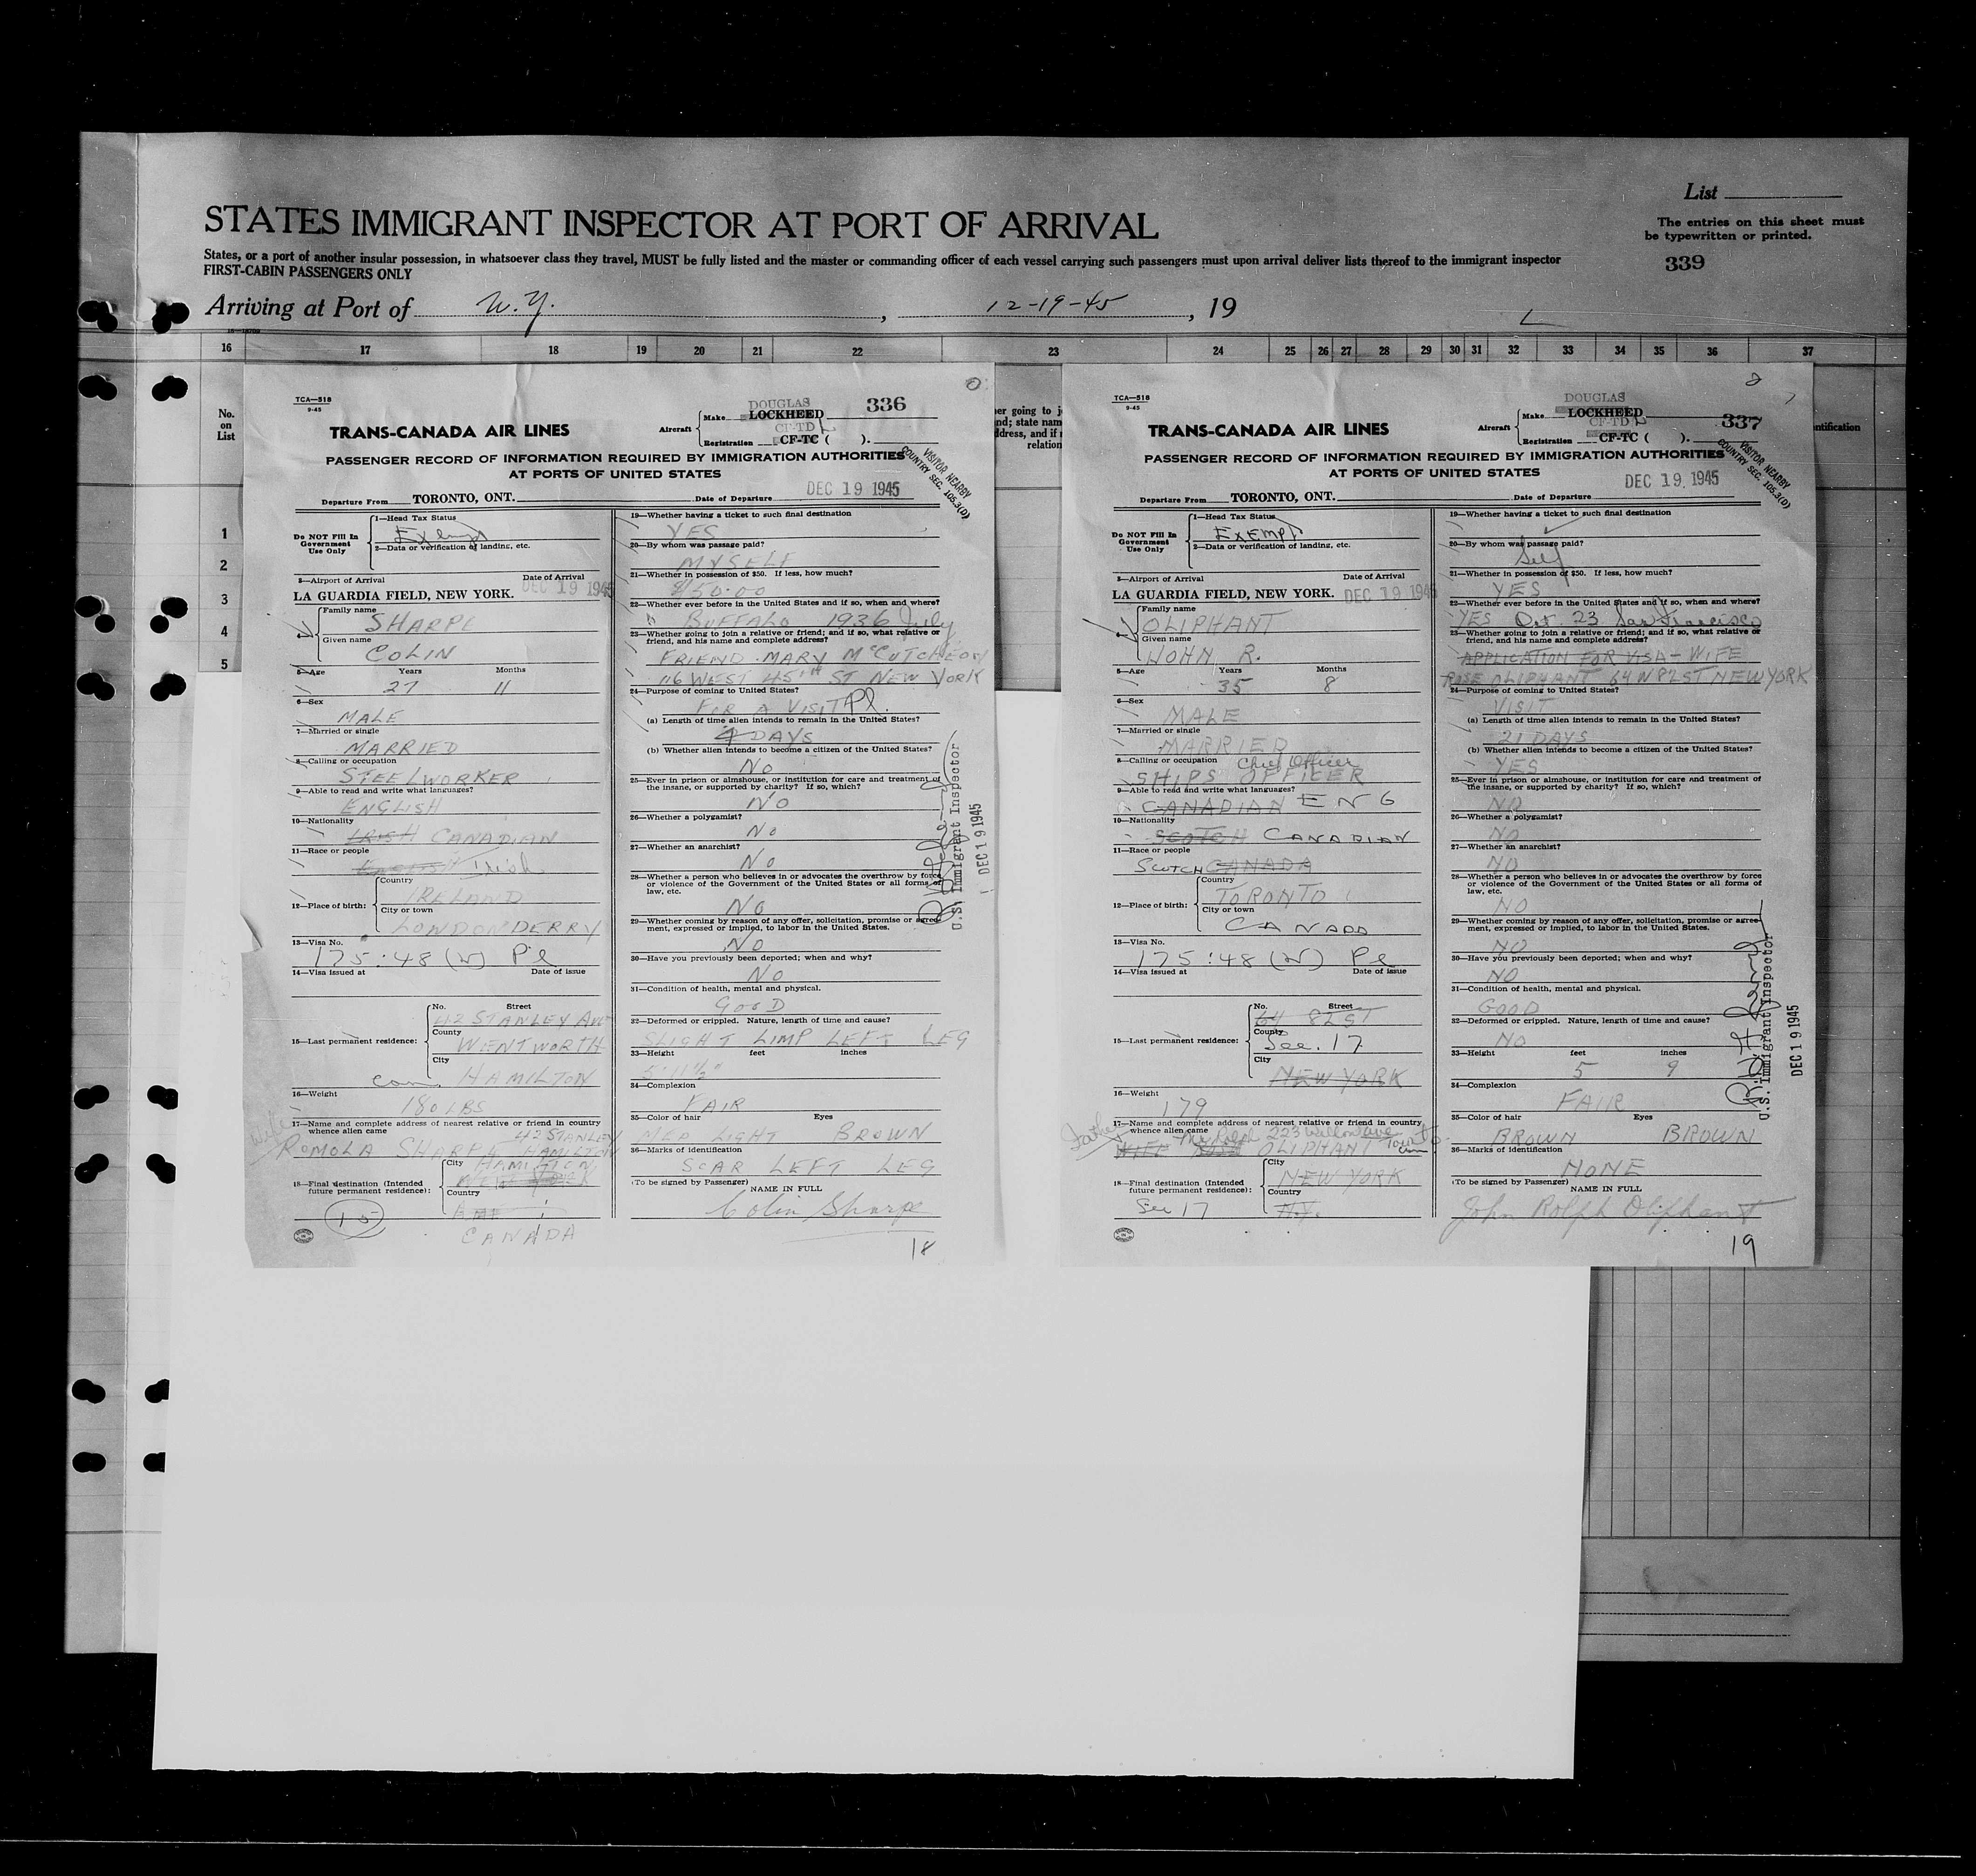 List
STATES IMMIGRANT INSPECTOR AT PORT OF ARRIVAL
The entries on this sheet must
be typewritten or printed.
States, or a port of another insular possession, in whatsoever class they travel, MUST be fully listed and the master or commanding officer of each vessel carrying such passengers must upon arrival deliver lists thereof to the immigrant inspector
FIRST-CABIN PASSENGERS ONLY
339
Arriving at Port of N.Y. , 12-19-45 , 19
16 17 18 19 20 21 22 23 24 25 26 27 28 29 30 31 32 33 34 35 36 37
No.
on
List
1
2
3
4
5
TCA—518
9-45
DOUGLAS
Aircraft Make LOCKHEED 336
CF-TD L
Registration CF-TC ( ).
TRANS-CANADA AIR LINES
PASSENGER RECORD OF INFORMATION REQUIRED BY IMMIGRATION AUTHORITIES
AT PORTS OF UNITED STATES
VISITOR NEARBY
COUNTRY SEC. 105.3(D)
Departure From TORONTO, ONT. Date of Departure DEC 19 1945
Do NOT Fill In
Government
Use Only
1—Head Tax Status
Exempt
2—Data or verification of landing, etc.
3—Airport of Arrival Date of Arrival
LA GUARDIA FIELD, NEW YORK. DEC 19 1945
4— Family name
SHARPE
Given name
COLIN
5—Age Years Months
27 11
6—Sex
MALE
7—Married or single
MARRIED
8—Calling or occupation
STEELWORKER
9—Able to read and write what languages?
ENGLISH
10—Nationality
IRISH CANADIAN
11—Race or people
Irish
12—Place of birth:
Country
IRELAND
City or town
LONDONDERRY
13—Visa No.
175:48 (W) Pl
14—Visa issued at Date of issue
15—Last permanent residence:
No. Street
42 STANLEY Ave
County
WENTWORTH
City
Can. HAMILTON
16—Weight
180 LBS
17—Name and complete address of nearest relative or friend in country
whence alien came
42 STANLEY
Wife
ROMOLA SHARPE HAMILTON
18—Final destination (Intended
future permanent residence):
City
HAMILTON
New York
Country
CANADA
19—Whether having a ticket to such final destination
YES
20—By whom was passage paid?
MYSELF
21—Whether in possession of $50. If less, how much?
$150.00
22—Whether ever before in the United States and if so, when and where?
BUFFALO 1936 July
23—Whether going to join a relative or friend; and if so, what relative or
friend, and his name and complete address?
FRIEND MARY McCUTCHEON
116 WEST 45TH ST NEW YORK
24—Purpose of coming to United States?
FOR A VISIT Pl.
(a) Length of time alien intends to remain in the United States?
DAYS
(b) Whether alien intends to become a citizen of the United States?
NO
25—Ever in prison or almshouse, or institution for care and treatment of
the insane, or supported by charity? If so, which?
NO
26—Whether a polygamist?
No
27—Whether an anarchist?
No
28—Whether a person who believes in or advocates the overthrow by force
or violence of the Government of the United States or all forms of
law, etc.
NO
29—Whether coming by reason of any offer, solicitation, promise or agree-
ment, expressed or implied, to labor in the United States.
No
30—Have you previously been deported; when and why?
NO
31—Condition of health, mental and physical.
GOOD
32—Deformed or crippled. Nature, length of time and cause?
SLIGHT LIMP LEFT LEG
33—Height feet inches
5' 11½"
34—Complexion
FAIR
35—Color of hair Eyes
MED LIGHT BROWN
36—Marks of identification
SCAR LEFT LEG
(To be signed by Passenger)
NAME IN FULL
Colin Sharpe
18
U.S. Immigrant Inspector
DEC 19 1945
er going to j
nd; state nam
ddress, and if
relation
TCA—518
9-45
DOUGLAS
Aircraft Make LOCKHEED 337
CF-TD L
Registration CF-TC ( ).
ntification
TRANS-CANADA AIR LINES
PASSENGER RECORD OF INFORMATION REQUIRED BY IMMIGRATION AUTHORITIES
AT PORTS OF UNITED STATES
VISITOR NEARBY
COUNTRY SEC. 105.3(D)
Departure From TORONTO, ONT. Date of Departure DEC 19. 1945
Do NOT Fill In
Government
Use Only
1—Head Tax Status
Exempt
2—Data or verification of landing, etc.
3—Airport of Arrival Date of Arrival
LA GUARDIA FIELD, NEW YORK. DEC 19 1945
4— Family name
OLIPHANT
Given name
JOHN R.
5—Age Years Months
35 8
6—Sex
MALE
7—Married or single
MARRIED
8—Calling or occupation Chief Officer
SHIPS OFFICER
9—Able to read and write what languages?
CANADIAN ENG
10—Nationality
SCOTCH CANADIAN
11—Race or people
SCOTCH CANADA
12—Place of birth:
Country
TORONTO
City or town
CANADA
13—Visa No.
175:48 (W) Pl
14—Visa issued at Date of issue
15—Last permanent residence:
No. Street
64 82 ST
County
See. 17
City
NEW YORK
16—Weight
179
17—Name and complete address of nearest relative or friend in country
whence alien came
Father
223 Willow ave
WIFE ROSE OLIPHANT Toronto
18—Final destination (Intended
future permanent residence):
See 17
City
NEW YORK
Country
N.Y.
19—Whether having a ticket to such final destination
20—By whom was passage paid?
Self
21—Whether in possession of $50. If less, how much?
YES
22—Whether ever before in the United States and if so, when and where?
YES Oct 23 San Francisco
23—Whether going to join a relative or friend; and if so, what relative or
friend, and his name and complete address?
APPLICATION FOR VISA - WIFE
ROSE OLIPHANT 64 W 82 ST NEW YORK
24—Purpose of coming to United States?
VISIT
(a) Length of time alien intends to remain in the United States?
21 DAYS
(b) Whether alien intends to become a citizen of the United States?
YES
25—Ever in prison or almshouse, or institution for care and treatment of
the insane, or supported by charity? If so, which?
NO
26—Whether a polygamist?
NO
27—Whether an anarchist?
NO
28—Whether a person who believes in or advocates the overthrow by force
or violence of the Government of the United States or all forms of
law, etc.
NO
29—Whether coming by reason of any offer, solicitation, promise or agree-
ment, expressed or implied, to labor in the United States.
NO
30—Have you previously been deported; when and why?
NO
31—Condition of health, mental and physical.
GOOD
32—Deformed or crippled. Nature, length of time and cause?
NO
33—Height feet inches
5 9
34—Complexion
FAIR
35—Color of hair Eyes
BROWN BROWN
36—Marks of identification
NONE
(To be signed by Passenger)
NAME IN FULL
John Rolph Oliphant
19
U.S. Immigrant Inspector
DEC 19 1945